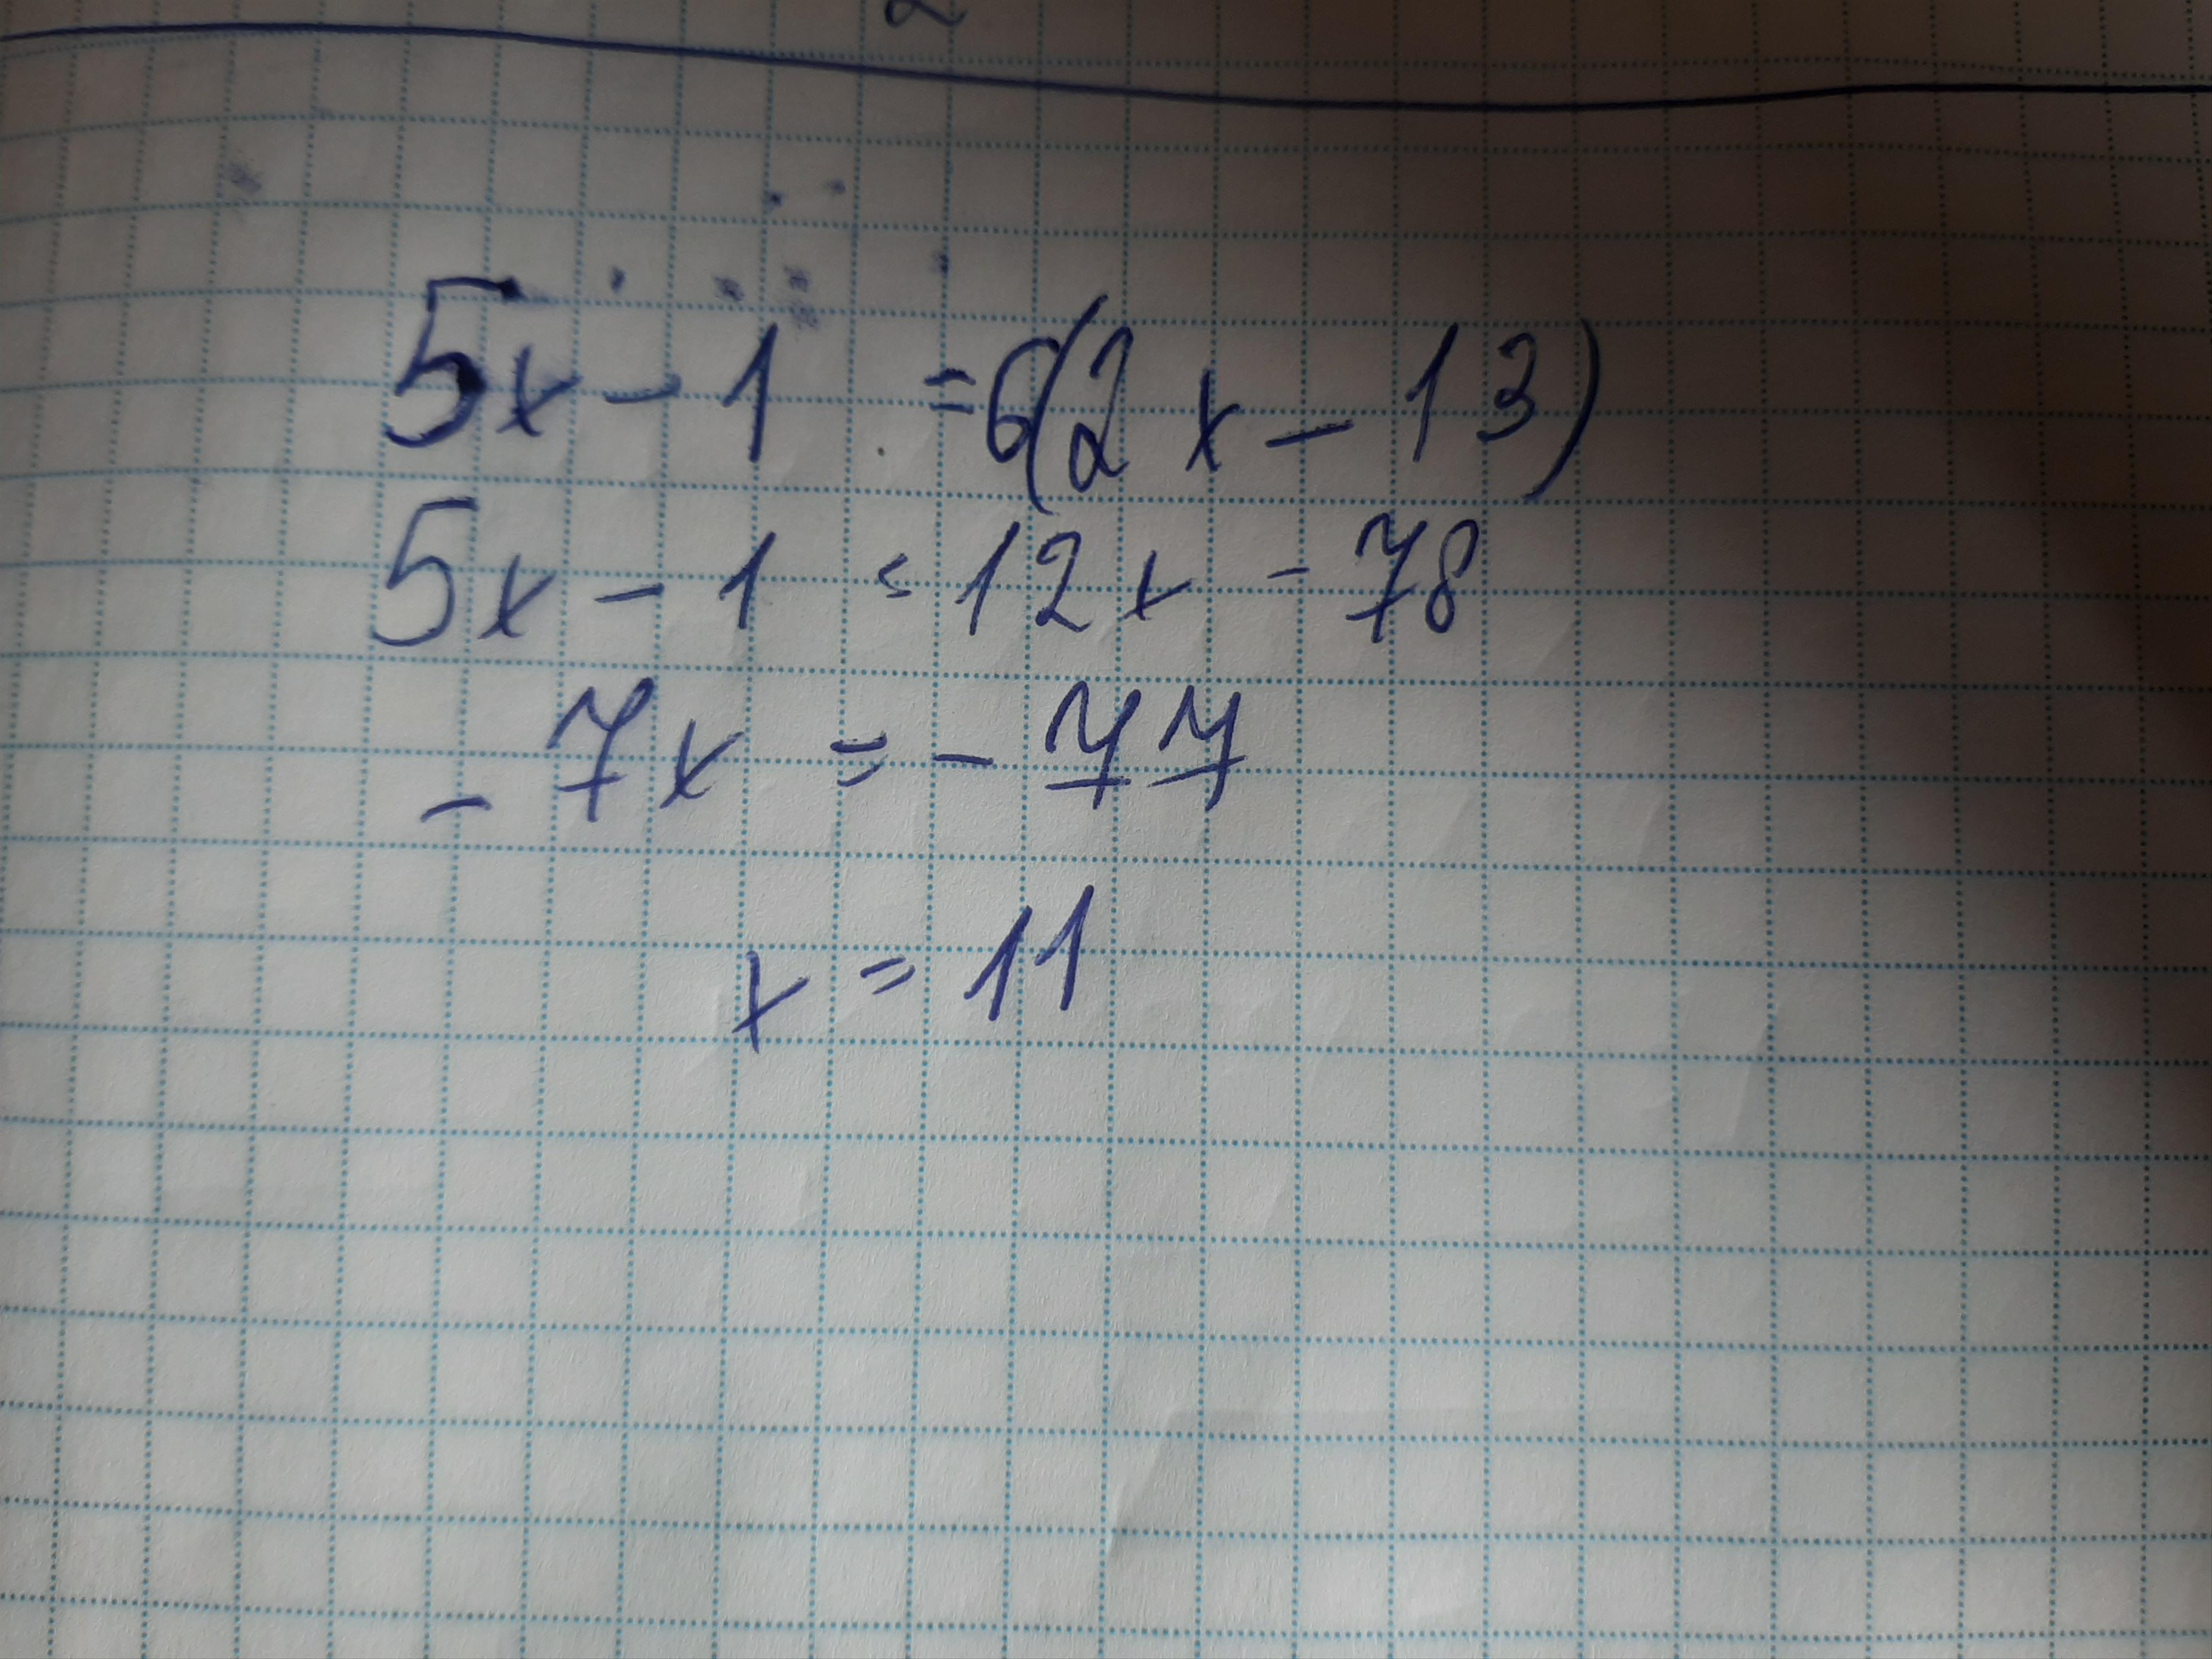 5x - 1 = 6(2x - 13)
5x - 1 = 12x - 78
- 7x = - 77
x = 11